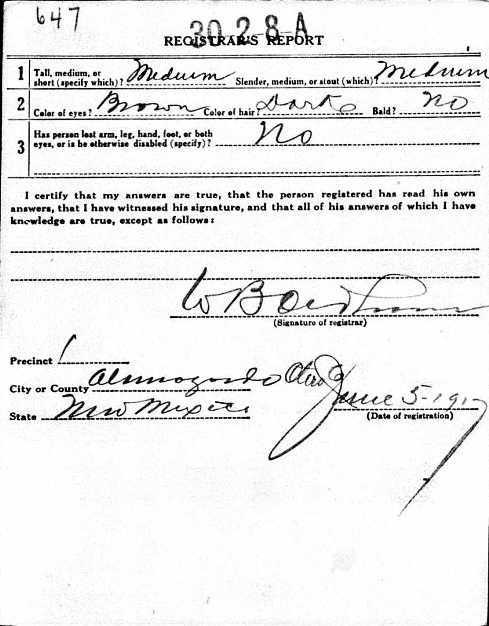 647
30-2-8-A
REGISTRAR'S REPORT
1 Tall, medium, or short (specify which)? Medium Slender, medium, or stout (which)? Medium
2 Color of eyes? Brown Color of hair? Dark Bald? No
3 Has person lost arm, leg, hand, foot, or both eyes, or is he otherwise disabled (specify)? No
I certify that my answers are true, that the person registered has read his own
answers, that I have witnessed his signature, and that all of his answers of which I have
knowledge are true, except as follows:
W B
(Signature of registrar)
Precinct 1
City or County Alamogordo Otero Co
State New Mexico June 5-1917
(Date of registration)